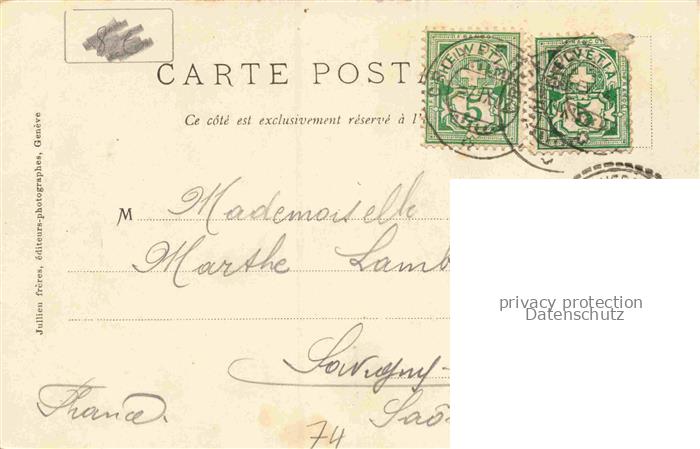 CARTE POST
HELVETIA HELVETIA
5 5
Ce côté est exclusivement réservé à l'
M Mademoiselle
Marthe Lamb
privacy protection
Datenschutz
Savigny-
France Saô
74
Jullien frères, éditeurs-photographes, Genève